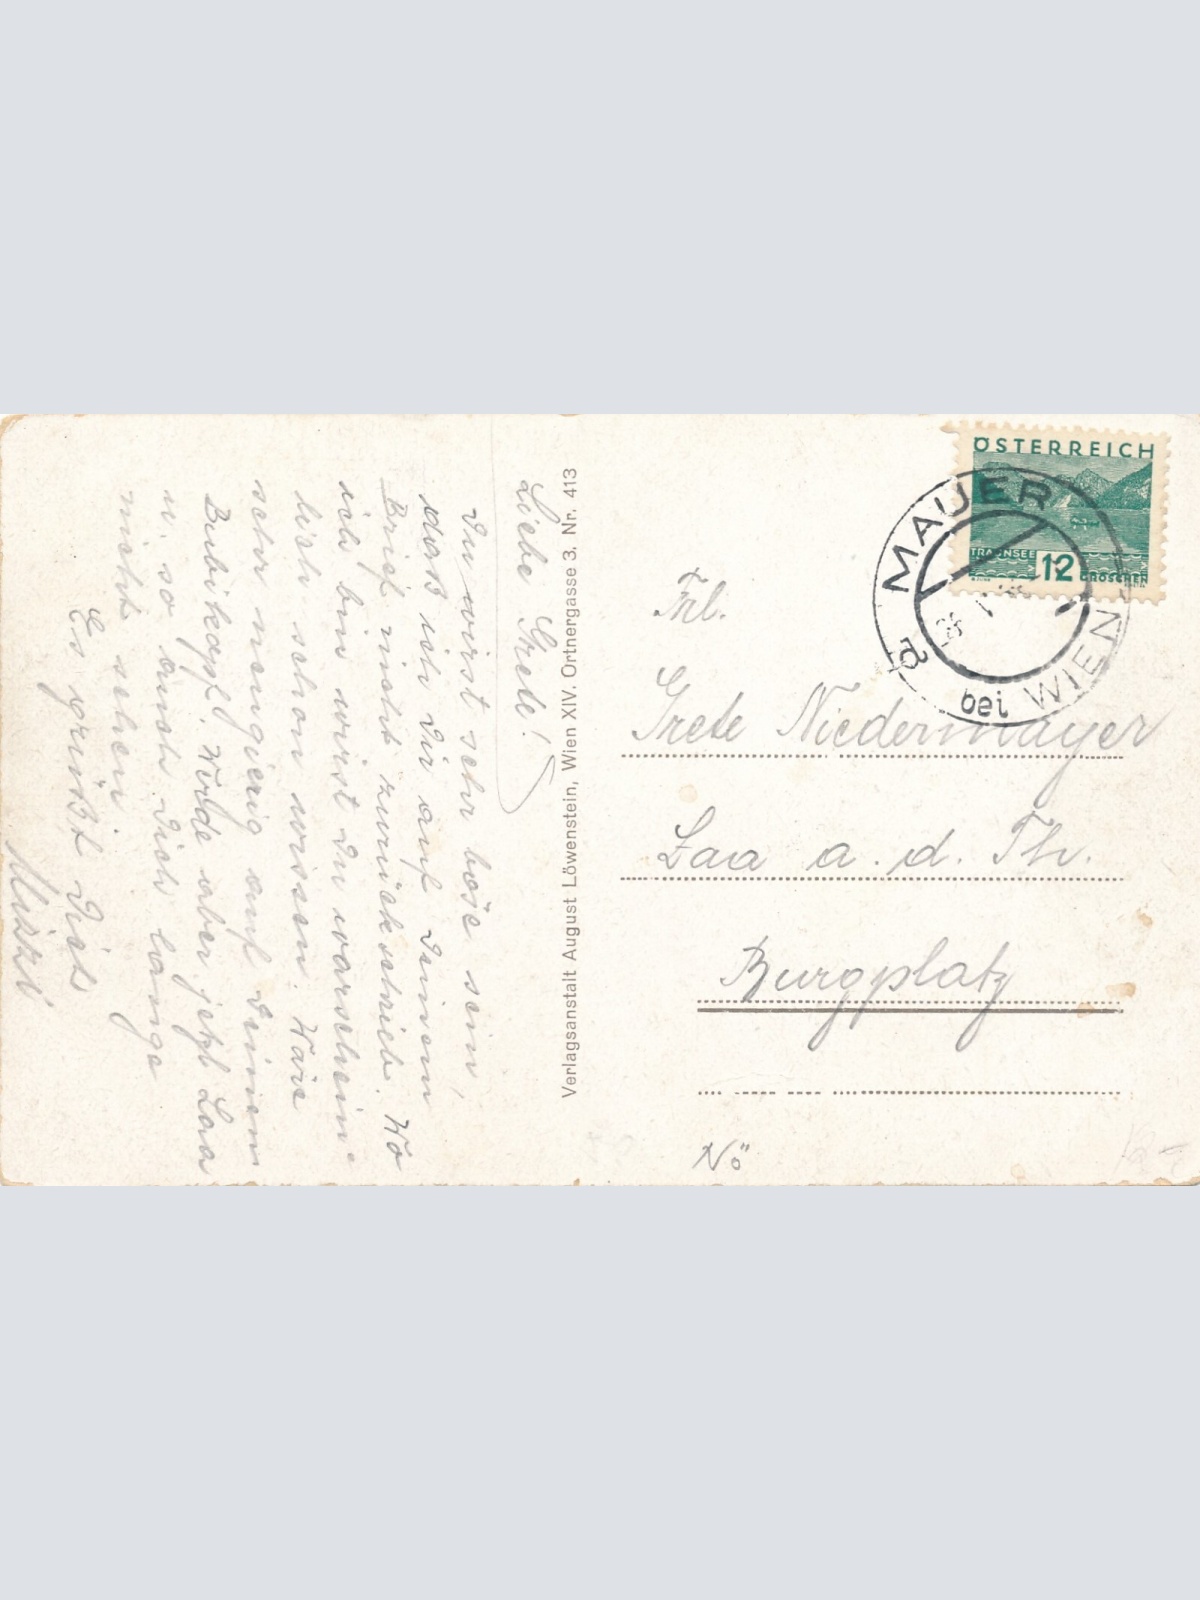 Liebe Grete!
Du wirst sehr böse sein,
daß ich Dir auf Deinem
Brief nicht zurückschrieb. Wo
ich bin wirst Du warschein-
lich schon wissen. Wäre
sehr neugierig auf Deinen
Bubikopf. Wede aber jetzt Laa
u. so auch Dich lange
nicht sehen.
Es grüßt Dich
Mizzi
Verlagsanstalt August Löwenstein, Wien XIV. Ortnergasse 3. Nr. 413
ÖSTERREICH
TRAUNSEE
12 GROSCHEN
MAUER
bei WIEN
Frl.
Grete Niedermayer
Laa a. d. Th.
Burgplatz
NÖ